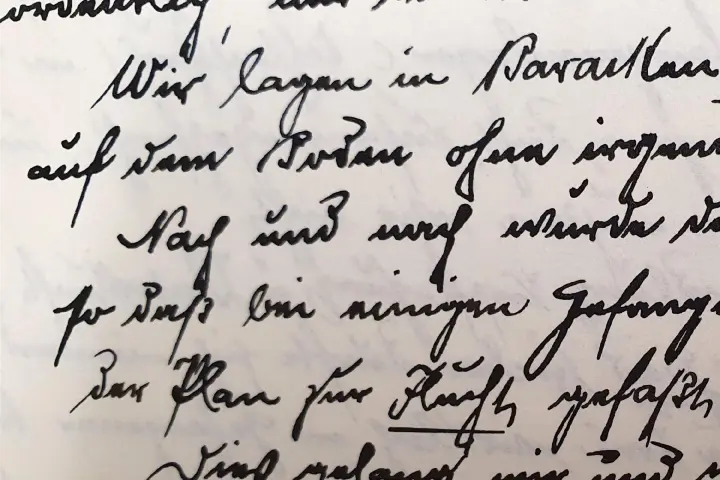 Wir lagen in Baracken
auf dem Boden ohne irgen
Nach und nach wurde
so daß bei einigen Gefang
der Plan zur Flucht gefaßt
Dies gelang mir und